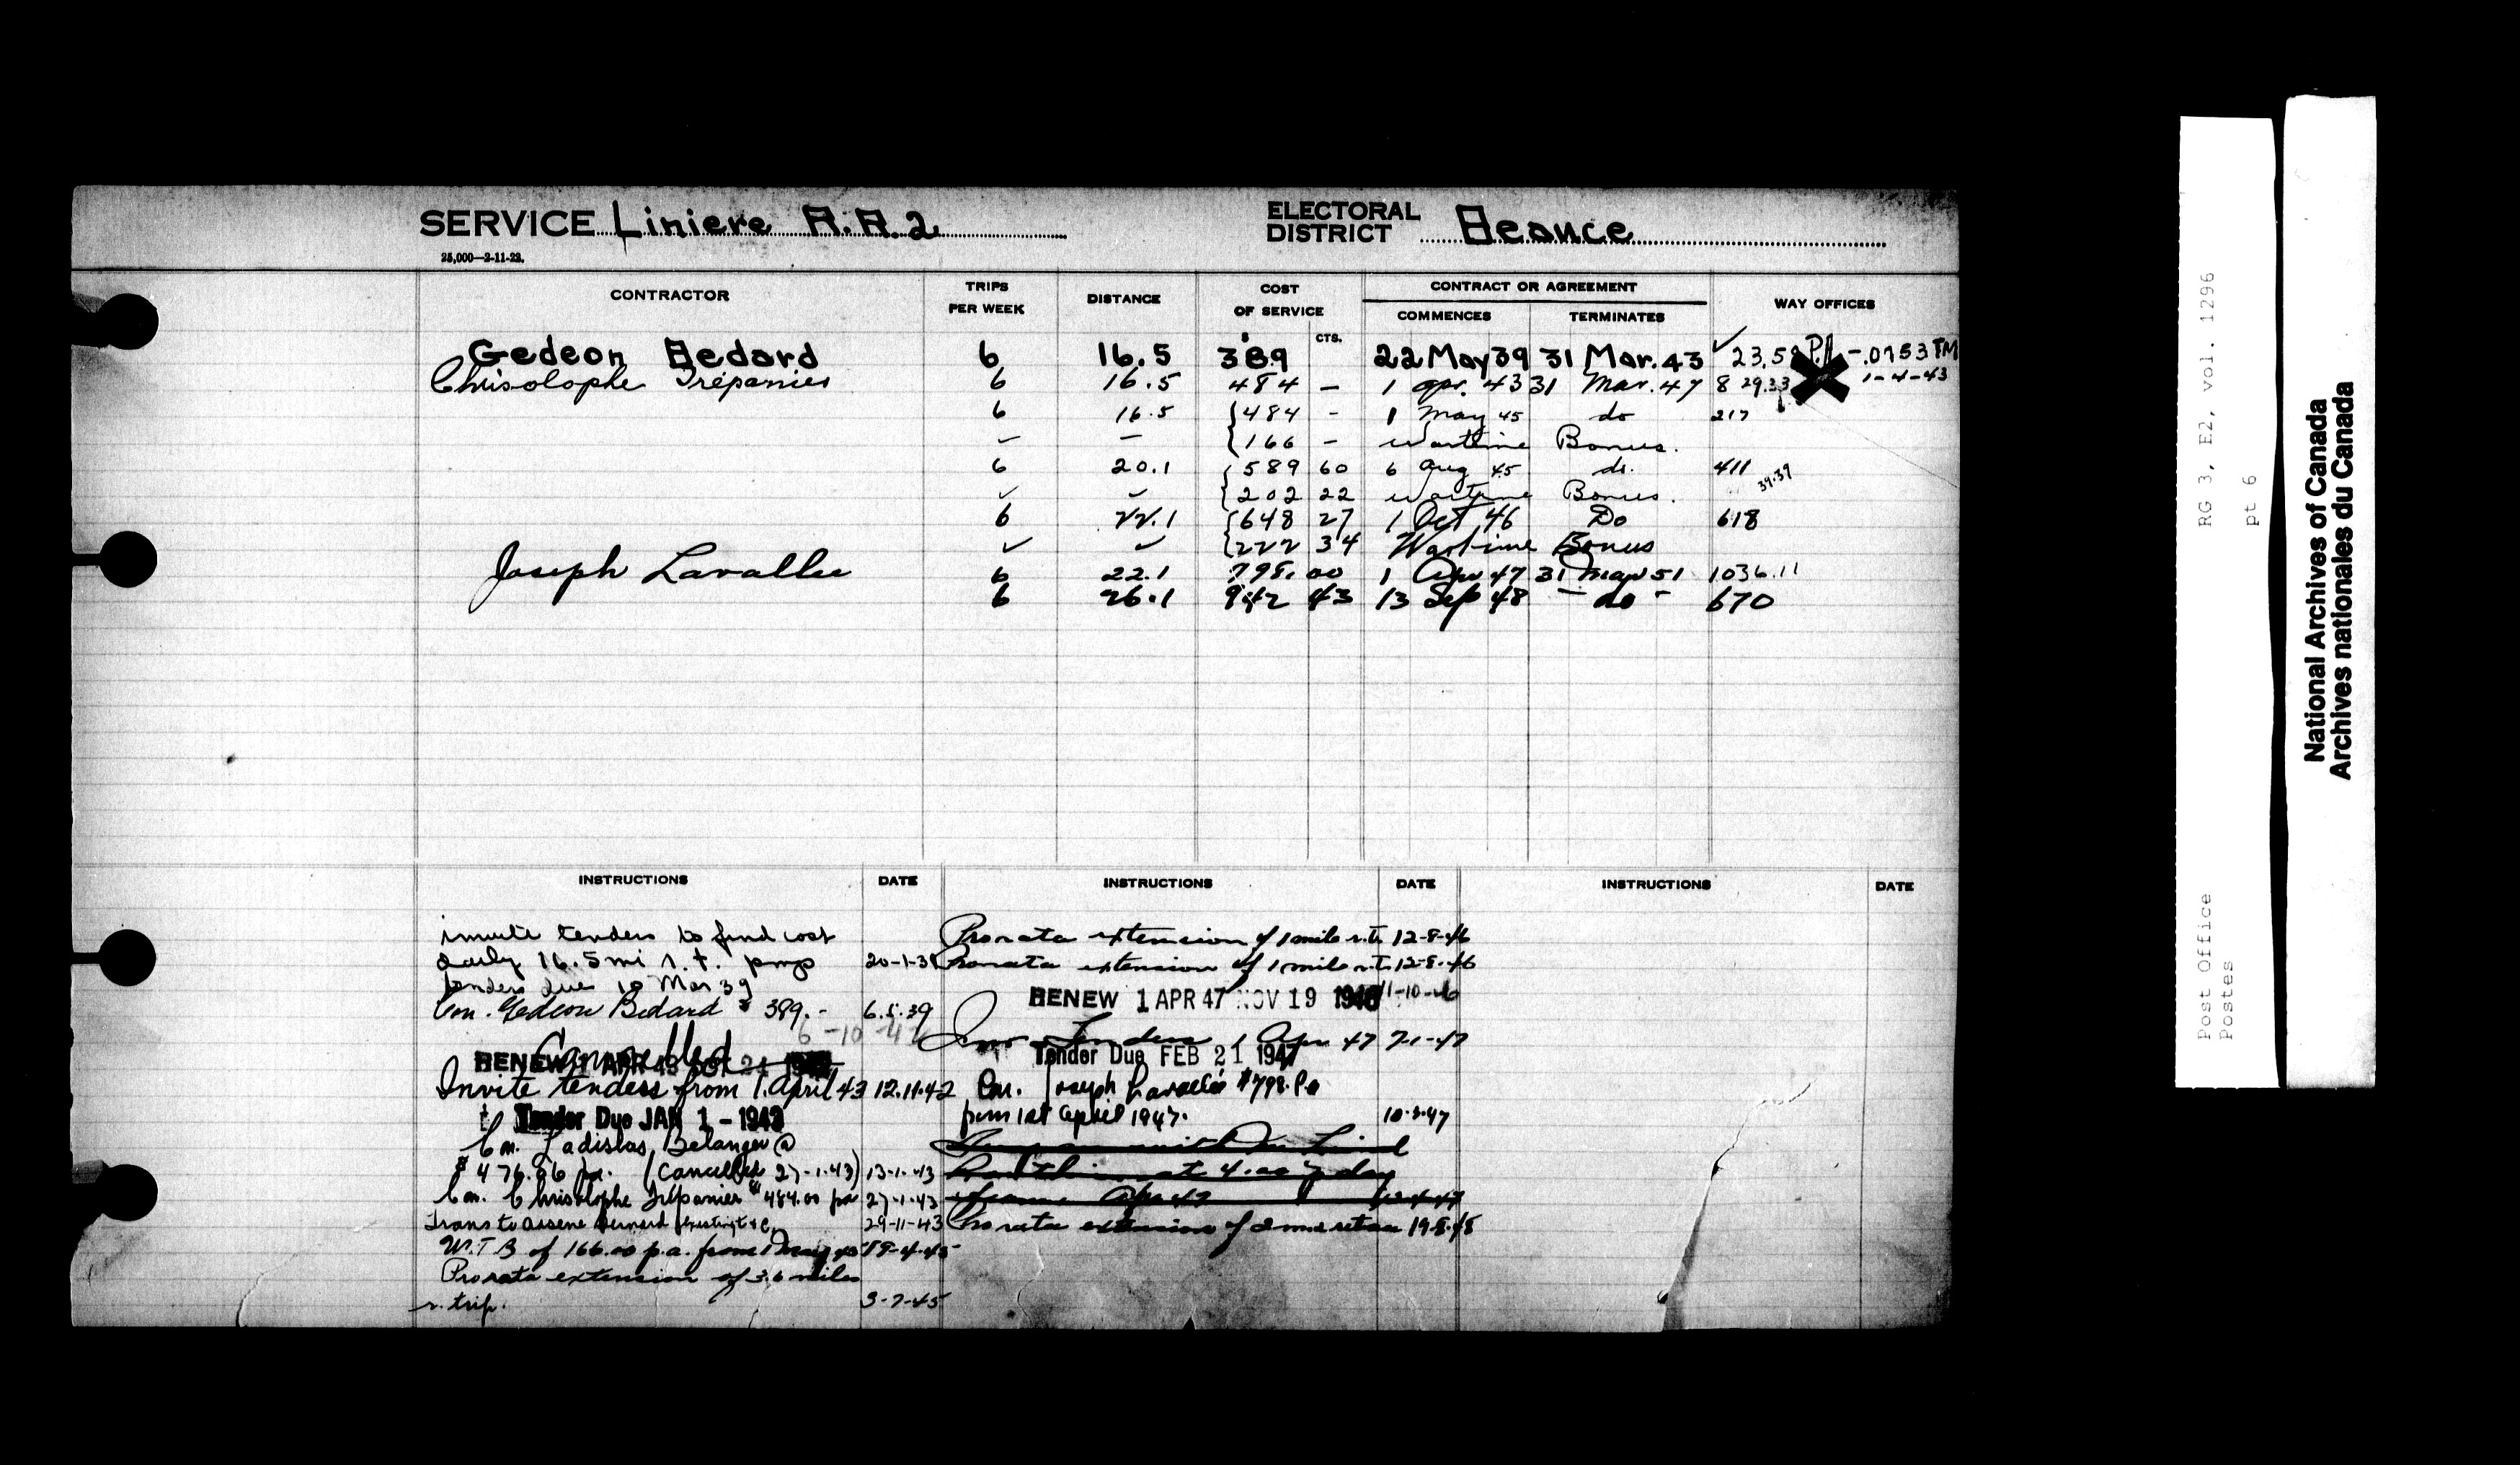 SERVICE Liniere R.R.2 ELECTORAL DISTRICT Beauce
25,000—2-11-22.
CONTRACTOR TRIPS PER WEEK DISTANCE COST OF SERVICE CONTRACT OR AGREEMENT WAY OFFICES
COMMENCES TERMINATES
$ CTS.
Gedeon Bedard 6 16.5 389 22 May 39 31 Mar. 43 ✓ 23.58 -.0753 PM
Chrisolophe Trépanier 6 16.5 484 — 1 apr. 43 31 Mar. 47 8 29.33 1-4-43
6 16.5 {484 - 1 May 45 do 217
✓ — {166 - Wartime Bonus.
6 20.1 {589 60 6 Aug 45 do. 411 39.39
✓ ✓ {202 22 Wartime Bonus.
6 22.1 {648 27 1 Oct 46 Do 618
✓ ✓ {222 34 Wartime Bonus
Joseph Lavallee 6 22.1 798.00 1 Apr 47 31 Mar 51 1036.11
6 26.1 942 43 13 Sep 48 — do - 670
INSTRUCTIONS DATE INSTRUCTIONS DATE INSTRUCTIONS DATE
invite tenders to find cost
daily 16.5 mi r.t. 20-1-39
tenders due 10 Mar 39
Con. Gedeon Bedard $ 389.- 6.5.39
6-10-42
Cancelled
RENEW 1 APR 43
Invite tenders from 1. April 43 12.11.42
Tender Due JAN 1 - 1943
Con. Ladislas Belanger @
$ 476.86 pa. (Cancelled 27-1.43) 13-1.43
Con. Chrisolophe Trépanier $484.00 pa 27-1-43
Trans to Bernard 29-11-43
W.T.B of 166.00 p.a. from 1 May 45 18-4-45
Prorata extension of 3.6 miles
r. trip. 3-7-45
Prorata extension of 1 mile r.t. 12-8-46
Prorata extension of 1 mile r.t. 12-8-46
RENEW 1 APR 47 NOV 19 1946 11-10-46
Tenders 1 Apr 47 7-1-47
Tender Due FEB 21 1947
Con. Joseph Lavallée $798. Pa
from 1st April 1947. 10-3-47
at 4.00 day
Prorata extension of 2 mile 19-8-48
RG 3, E2, vol. 1296
pt 6
Post Office
Postes
National Archives of Canada
Archives nationales du Canada